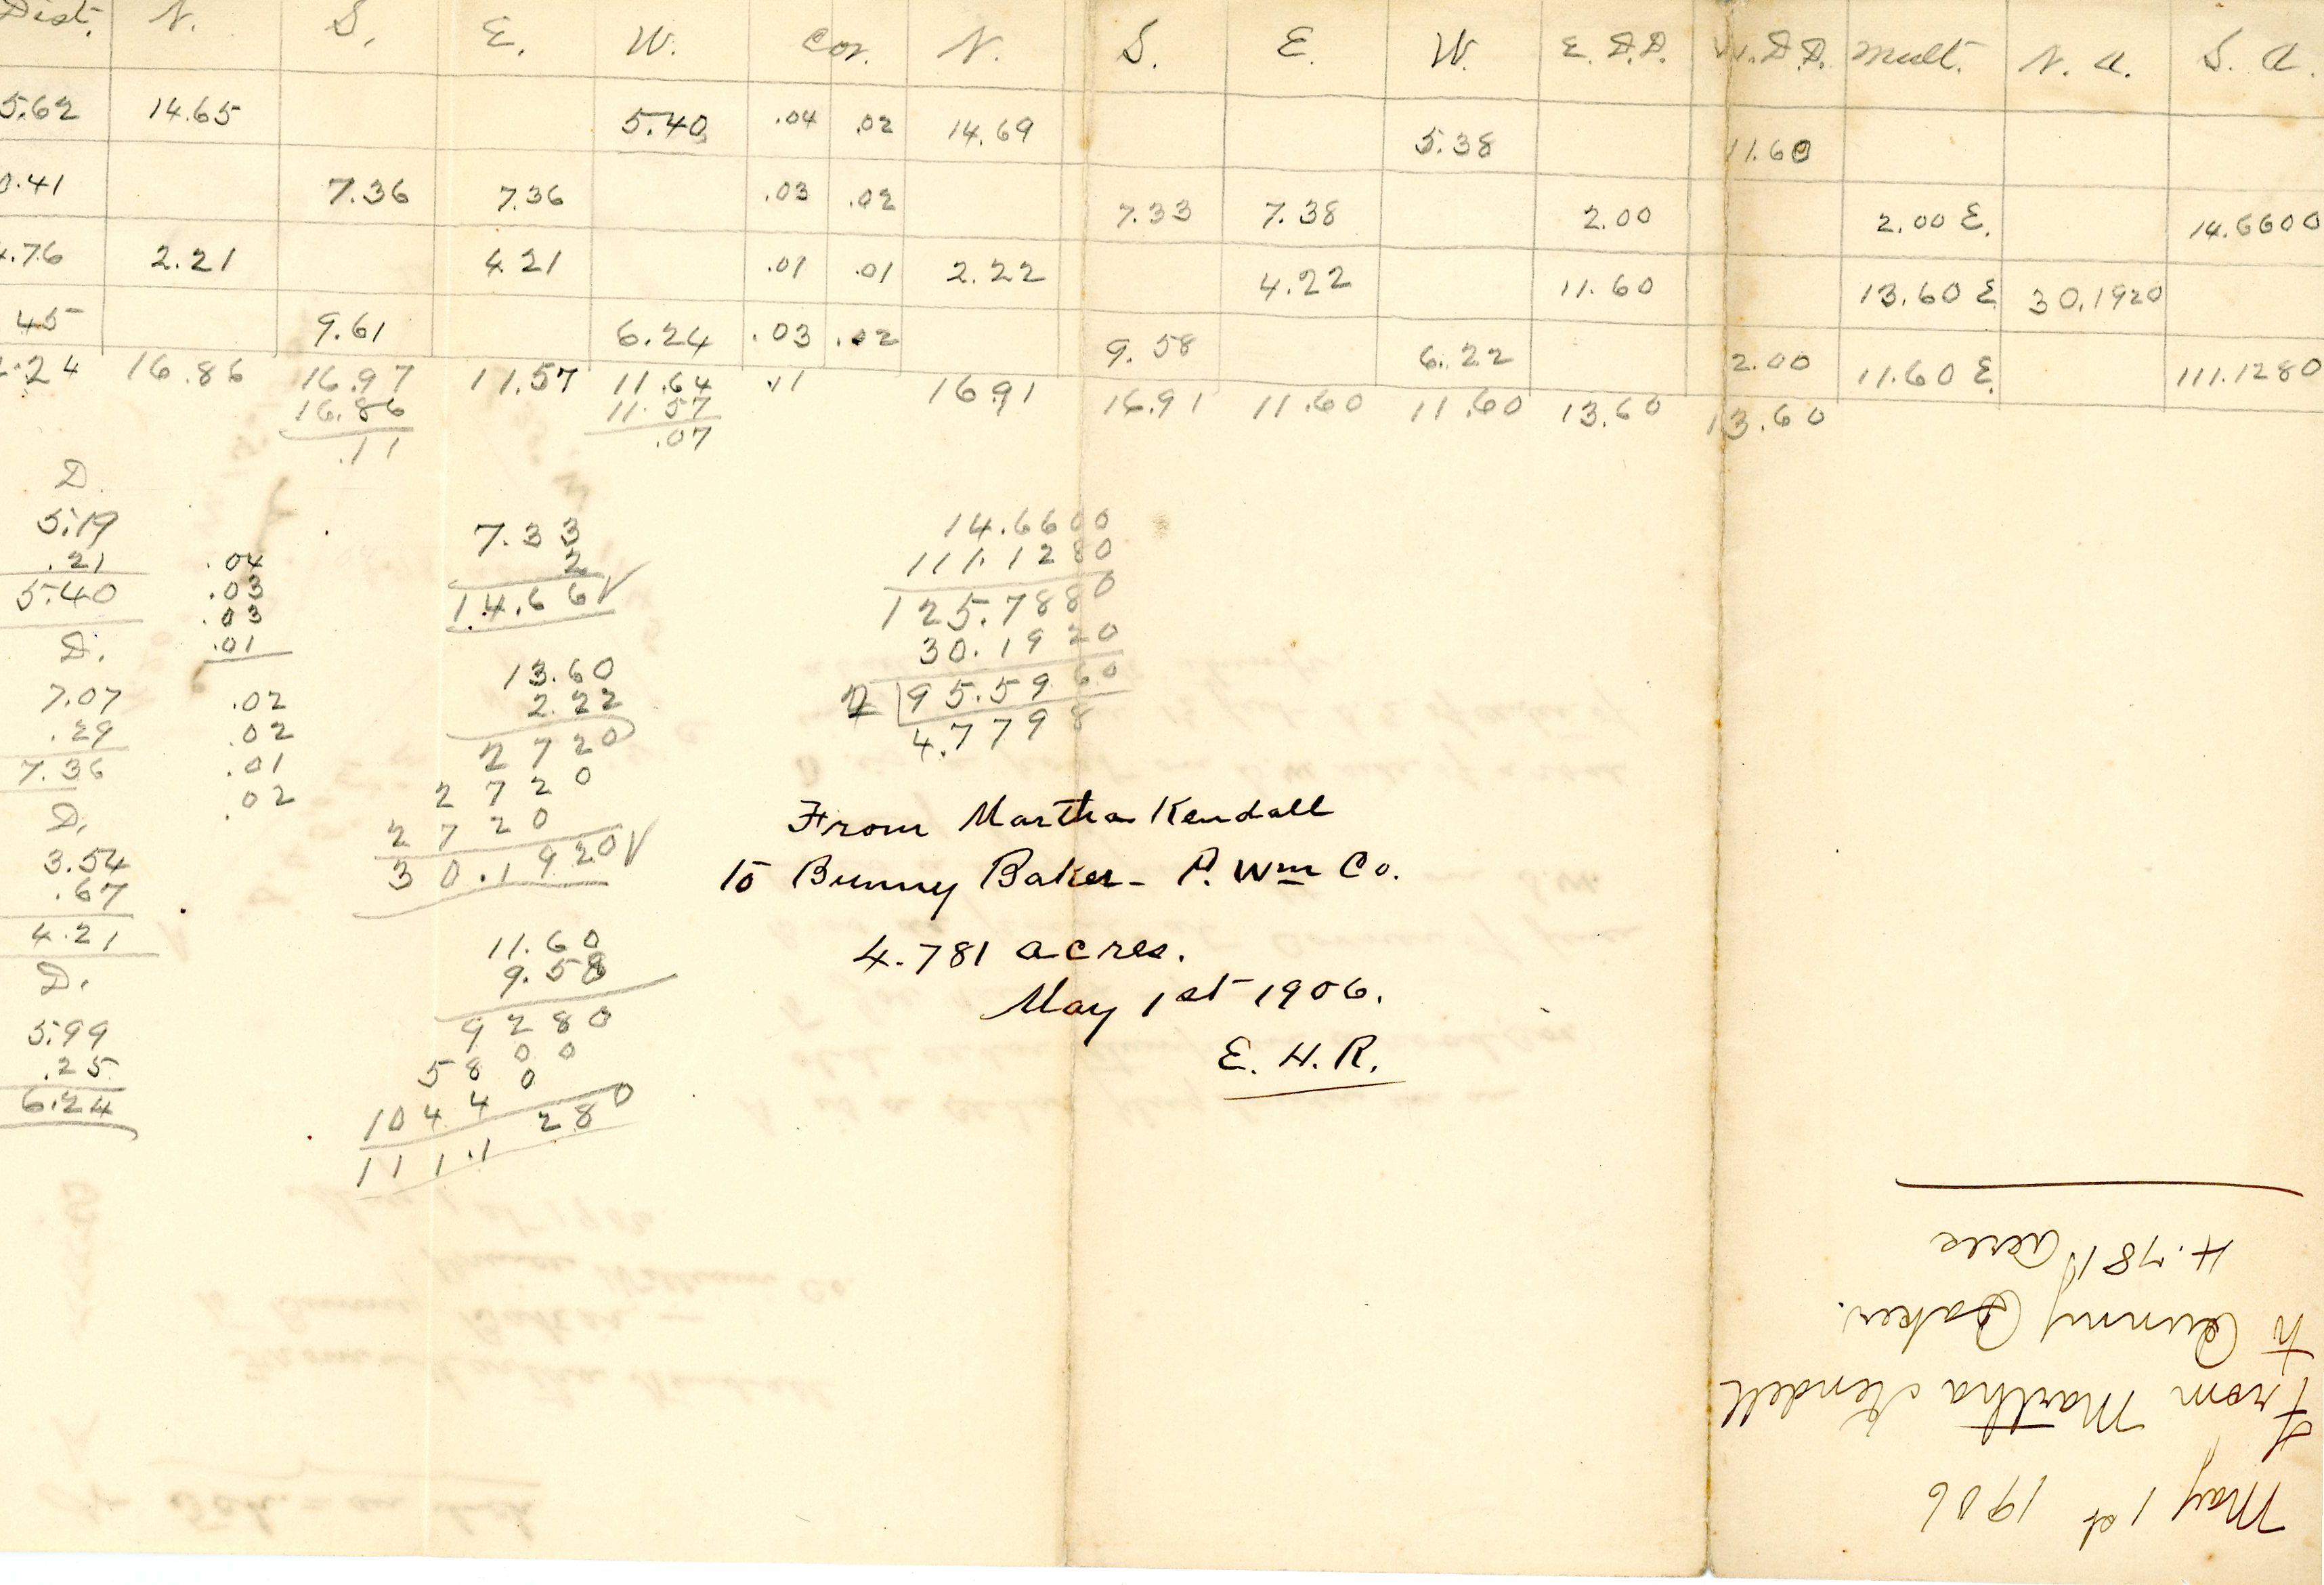 Dist. N. S. E. W. Cor. N. S. E. W. E.D.D. W.D.D. Mult. N.A. S.A.
5.62 14.65 5.40 .04 .02 14.69 5.38 11.60
0.41 7.36 7.36 .03 .02 7.33 7.38 2.00 2.00 E. 14.6600
4.76 2.21 4.21 .01 .01 2.22 4.22 11.60 13.60 E 30.1920
45 9.61 6.24 .03 .02 9.58 6.22 2.00 11.60 E. 111.1280
2.24 16.86 16.97 11.57 11.64 .11 16.91 16.91 11.60 11.60 13.60 13.60
16.86 11.57
.11 .07
D.
5.19
.21
5.40
D.
7.07
.29
7.36
D.
3.54
.67
4.21
D.
5.99
.25
6.24
.04
.03
.03
.01
.02
.02
.01
.02
7.33
2
14.66
13.60
2.22
2720
2720
2720
30.1920
11.60
9.58
9280
5800
10440
111.1280
14.6600
111.1280
125.7880
30.1920
2 95.5960
4.7798
From Martha Kendall
to Bunny Baker - P. Wm Co.
4.781 acres.
May 1st 1906.
E. H. R.
May 1st 1906
From Martha Kendall
to Bunny Baker.
4.781 acres